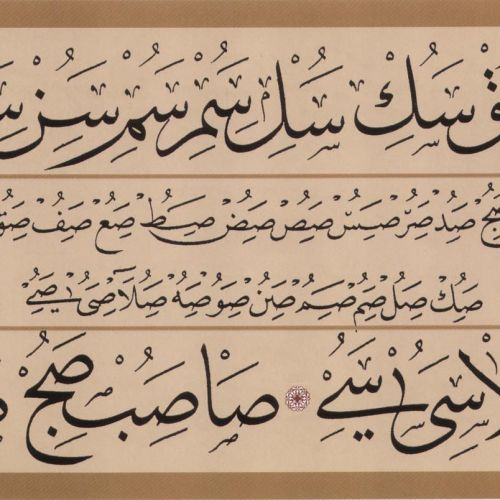 سك سل سم سم سن
صد صر صس صص صض صط صع صف
صك صل صم صم صن صو صه صلا صى صے
سى سے صا صب صج